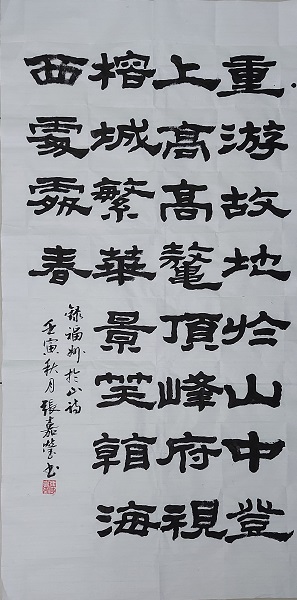 重游故地於山中登
上高高鼇頂峰府視
榕城繁華景笑海
西處處春
錄福州於山詩
壬寅秋月張嘉瑩书